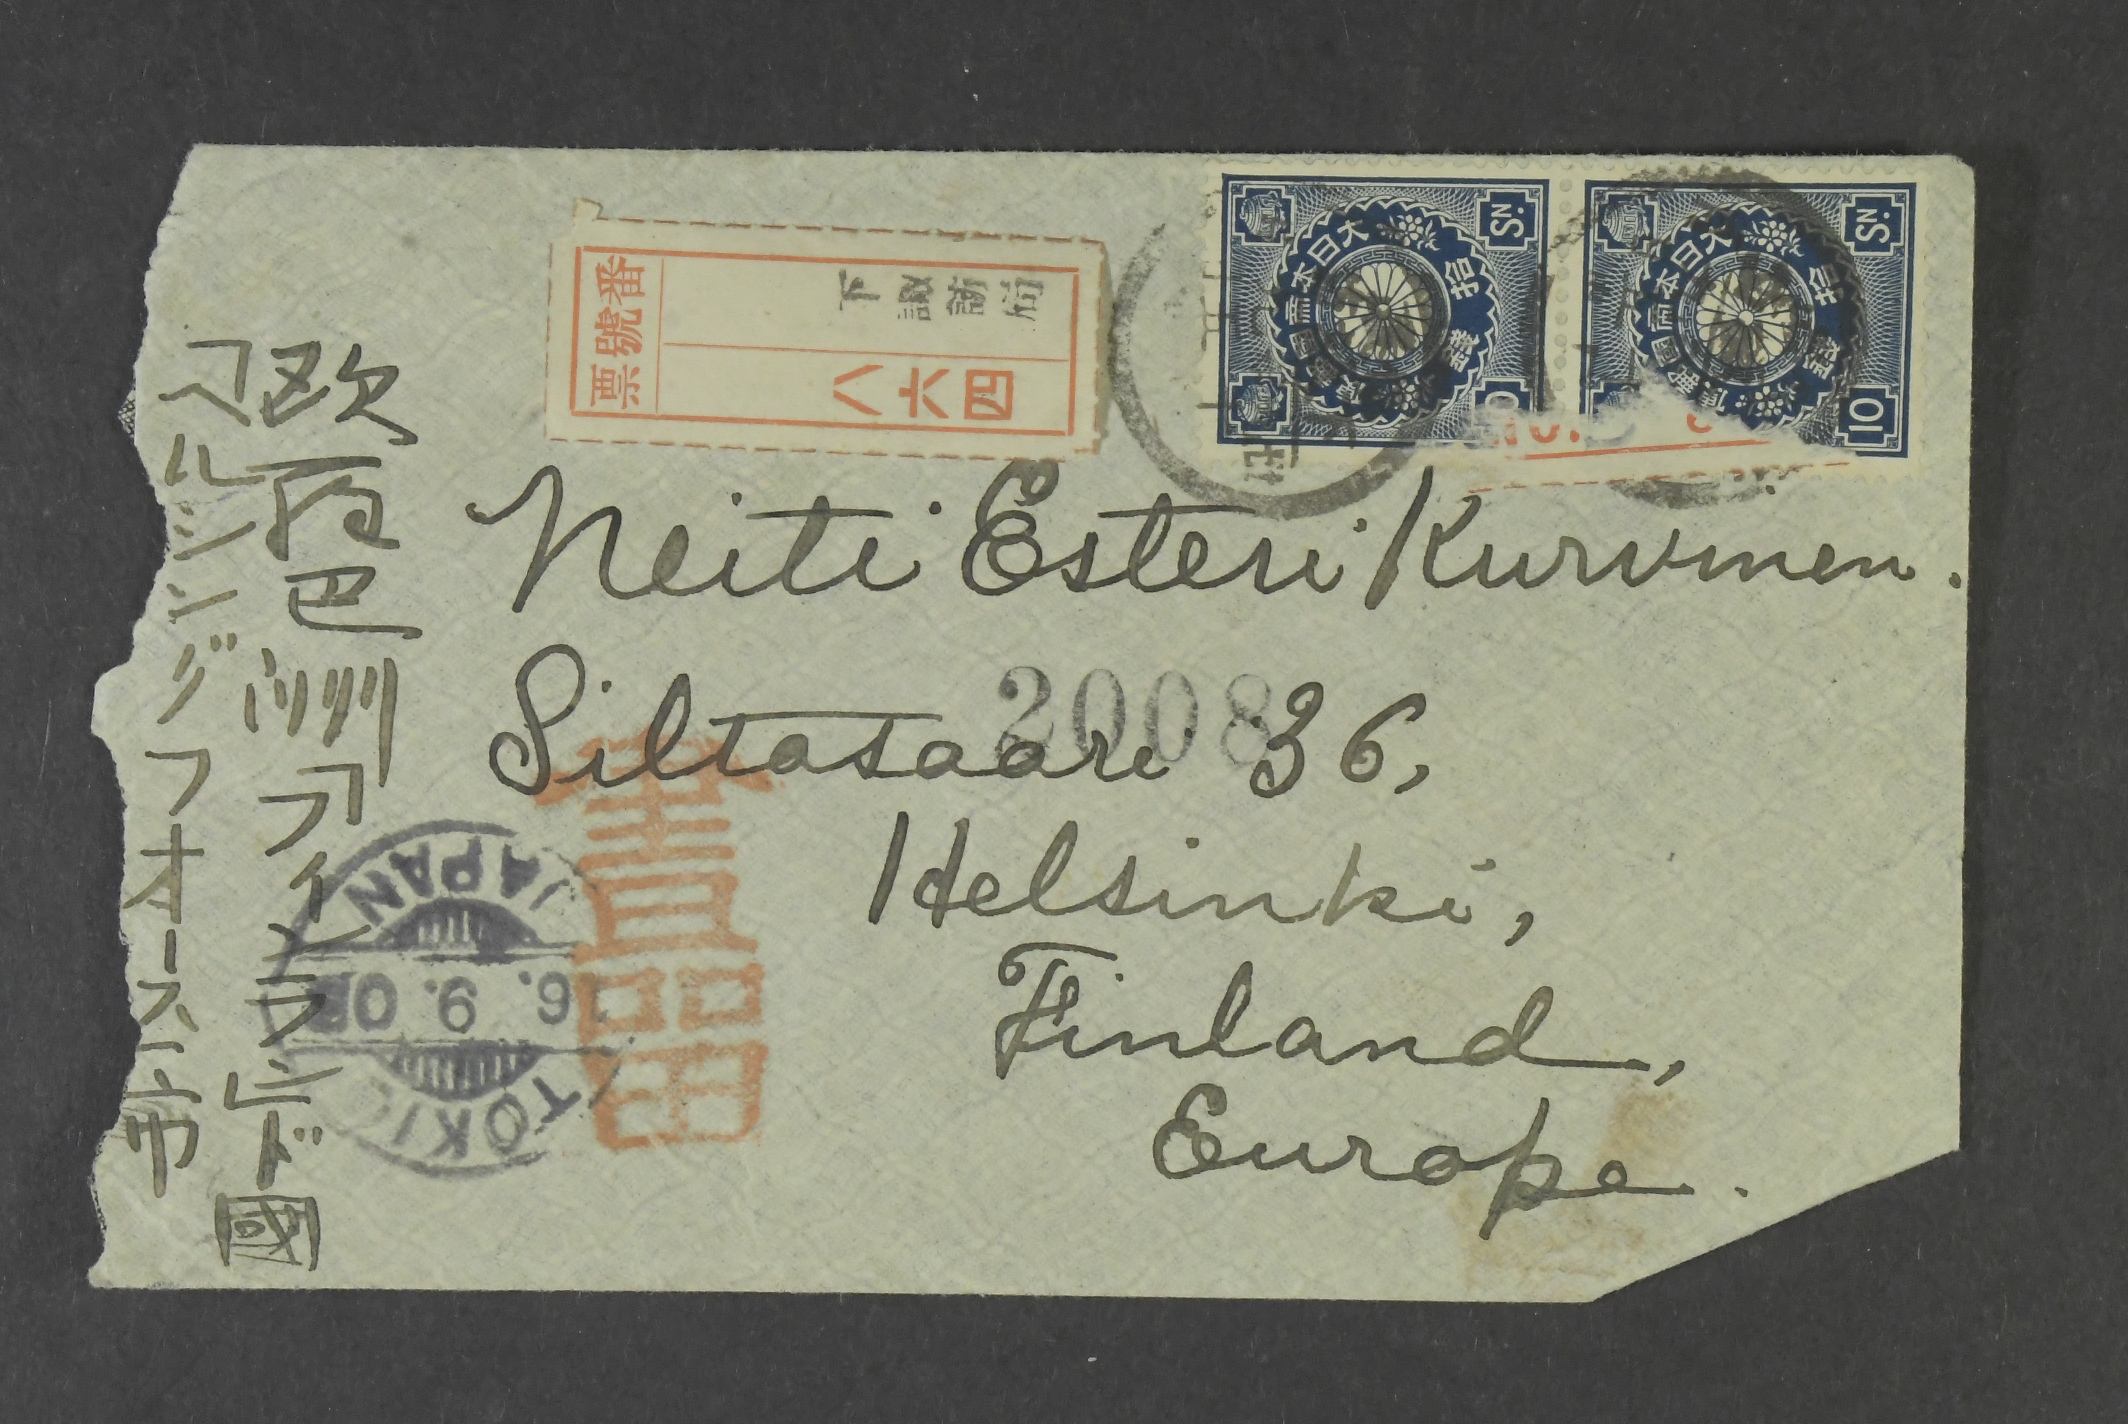 番號票
下諏訪局
八六四
大日本帝國郵便
拾錢
SN.
大日本帝國郵便
拾錢
SN.
10
Neiti Esteri Kurvinen.
Siltasaari 36,
Helsinki,
Finland,
Europe.
2008
書留
欧 巴洲フィンランド國
ヘルシングフオース市
TOKIO JAPAN
16.9.08